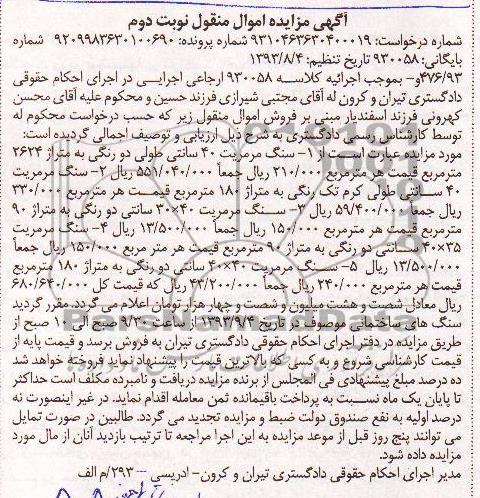 آگهی مزایده اموال منقول نوبت دوم
شماره درخواست: ۹۳۱۰۴۶۳۶۳۰۴۰۰۰۱۹ شماره پرونده: ۹۲۰۹۹۸۳۶۳۰۱۰۰۶۹۰ شماره
بایگانی: ۹۳۰۰۵۸ تاریخ تنظیم: ۱۳۹۳/۸/۴
۴۷۶/۹۳و- بموجب اجرائیه کلاسه ۹۳۰۰۵۸ ارجاعی اجرایی در اجرای احکام حقوقی
دادگستری تیران و کرون له آقای مجتبی شیرازی فرزند حسین و محکوم علیه آقای محسن
کهرونی فرزند اسفندیار مبنی بر فروش اموال منقول زیر که حسب درخواست محکوم له
توسط کارشناس رسمی دادگستری به شرح ذیل ارزیابی و توصیف اجمالی گردیده است:
مورد مزایده عبارت است از ۱- سنگ مرمریت ۴۰ سانتی طولی دو رنگی به متراژ ۲۶۲۴
مترمربع قیمت هر مترمربع ۲۱۰/۰۰۰ ریال جمعاً ۵۵۱/۰۴۰/۰۰۰ ریال ۲- سنگ مرمریت
۴۰ سانتی طولی کرم تک رنگی به متراژ ۱۸۰ مترمربع قیمت هر مترمربع ۳۳۰/۰۰۰
ریال جمعاً ۵۹/۴۰۰/۰۰۰ ریال ۳- سنگ مرمریت ۴۰×۳۰ سانتی دو رنگی به متراژ ۹۰
مترمربع قیمت هر مترمربع ۱۵۰/۰۰۰ ریال جمعاً ۱۳/۵۰۰/۰۰۰ ریال ۴- سنگ مرمریت
۴۰×۳۵ سانتی دو رنگی به متراژ ۹۰ مترمربع قیمت هر متر مربع ۱۵۰/۰۰۰ ریال جمعاً
۱۳/۵۰۰/۰۰۰ ریال ۵- سنگ مرمریت ۴۰×۴۰ سانتی دو رنگی به متراژ ۱۸۰ مترمربع
قیمت هر مترمربع ۲۴۰/۰۰۰ ریال جمعاً ۴۳/۲۰۰/۰۰۰ ریال که قیمت کل ۶۸۰/۶۴۰/۰۰۰
ریال معادل شصت و هشت میلیون و شصت و چهار هزار تومان اعلام می گردد. مقرر گردید
سنگ های ساختمانی موصوف در تاریخ ۱۳۹۳/۹/۴ از ساعت ۹/۳۰ صبح الی ۱۰ صبح از
طریق مزایده در دفتر اجرای احکام حقوقی دادگستری تیران به فروش برسد و قیمت پایه از
قیمت کارشناسی شروع و به کسی که بالاترین قیمت را پیشنهاد نماید فروخته خواهد شد
ده درصد مبلغ پیشنهادی فی المجلس از برنده مزایده دریافت و نامبرده مکلف است حداکثر
تا پایان یک ماه نسبت به پرداخت باقیمانده ثمن معامله اقدام نماید. در غیر اینصورت نه
درصد اولیه به نفع صندوق دولت ضبط و مزایده تجدید می گردد. طالبین در صورت تمایل
می توانند پنج روز قبل از موعد مزایده به این اجرا مراجعه تا ترتیب بازدید آنان از مال مورد
مزایده داده شود.
مدیر اجرای احکام حقوقی دادگستری تیران و کرون- ادریسی ---۲۹۳/م الف